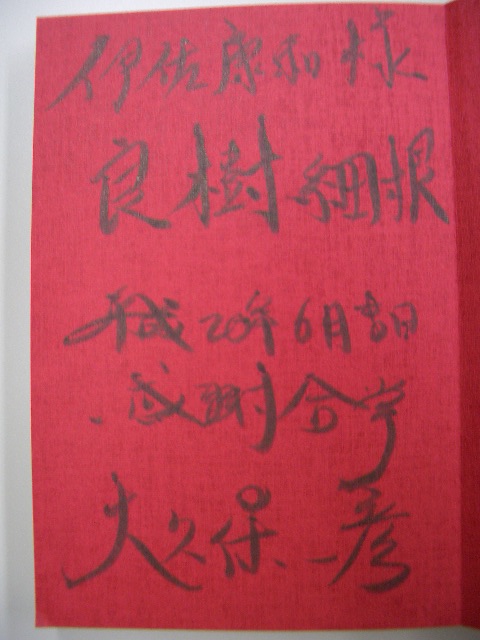 伊佐康和様
良樹細根
平成20年6月吉日
感謝合掌
大久保一彦